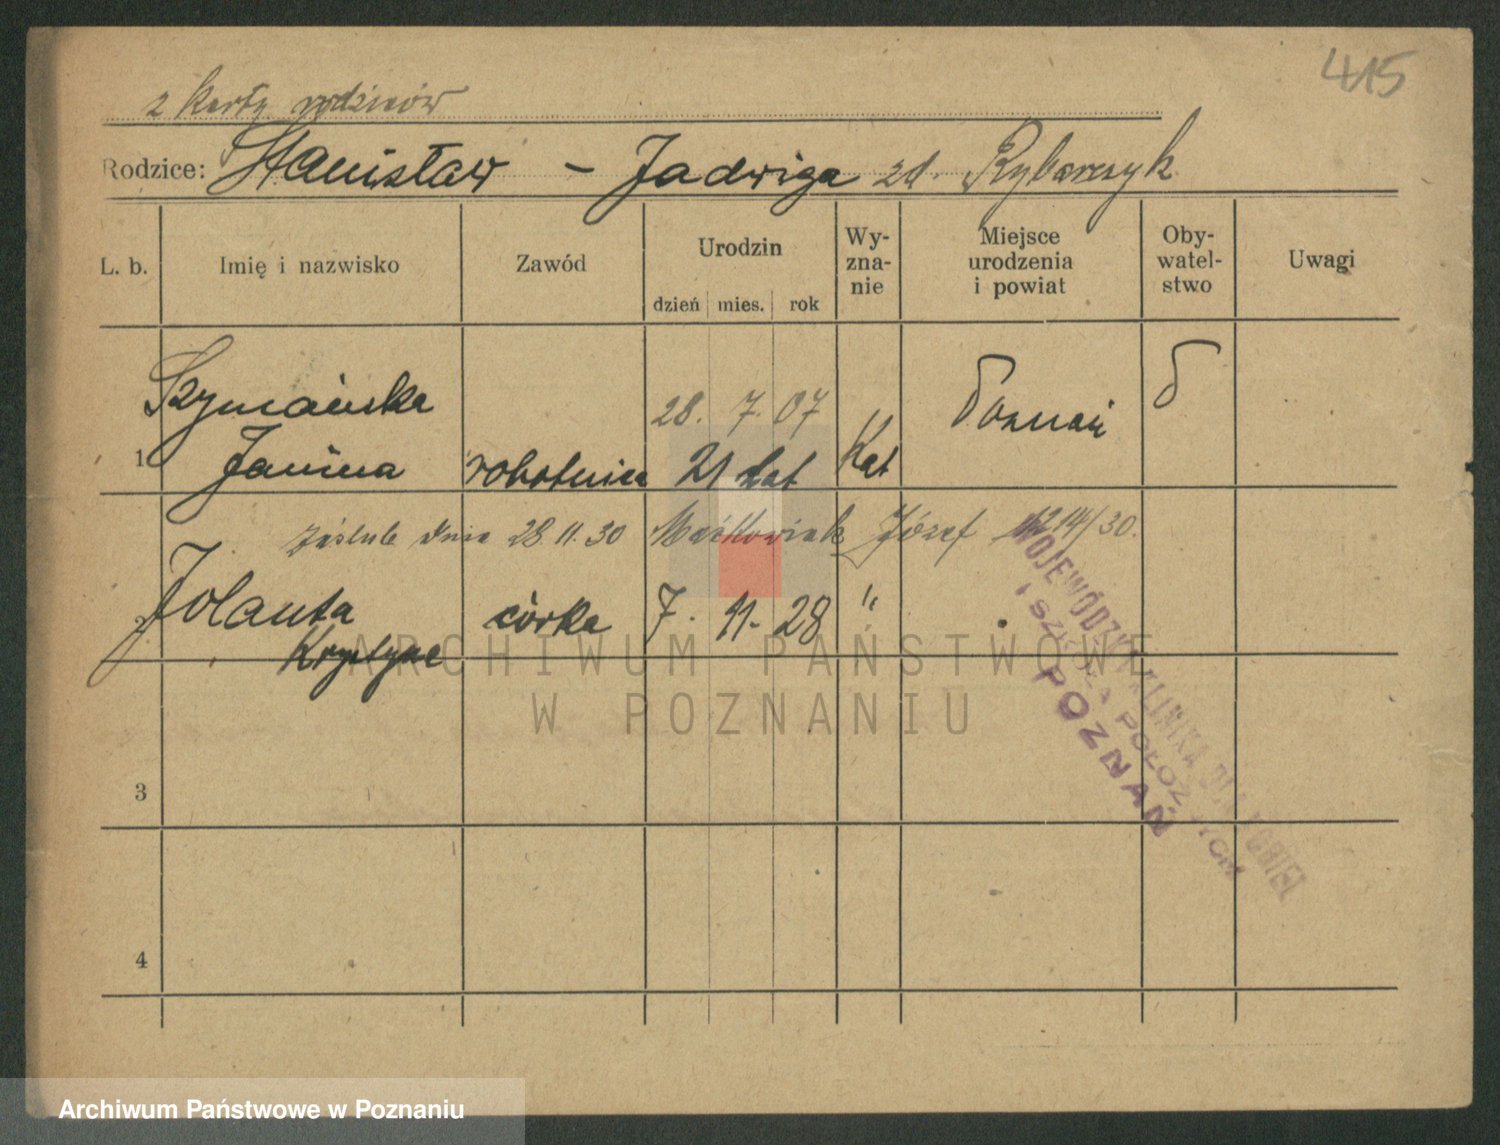 415
z karty rodziców
Rodzice: Stanisław - Jadwiga zd. Rybarczyk
L. b. Imię i nazwisko Zawód Urodzin dzień mies. rok Wy-zna-nie Miejsce urodzenia i powiat Oby-watel-stwo Uwagi
Szymańska 28. 7. 07 Poznań P
1 Janina robotnica 21 lat Kat
zaślub. dnia 28.11.30 Maćkowiak Józef 1214/30.
2 Jolanta córka 7. 11. 28 "
Krystyna
3
4
WOJEWÓDZKA KLINIKA DLA KOBIET
I SZKOŁA POŁOŻNYCH
POZNAŃ
ARCHIWUM PAŃSTWOWE
W POZNANIU
Archiwum Państwowe w Poznaniu